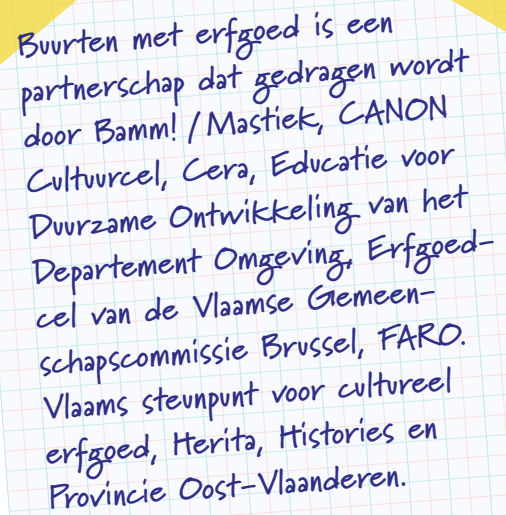 Buurten met erfgoed is een
partnerschap dat gedragen wordt
door Bamm! / Mastiek, CANON
Cultuurcel, Cera, Educatie voor
Duurzame Ontwikkeling van het
Departement Omgeving, Erfgoed-
cel van de Vlaamse Gemeen-
schapscommissie Brussel, FARO.
Vlaams steunpunt voor cultureel
erfgoed, Herita, Histories en
Provincie Oost-Vlaanderen.